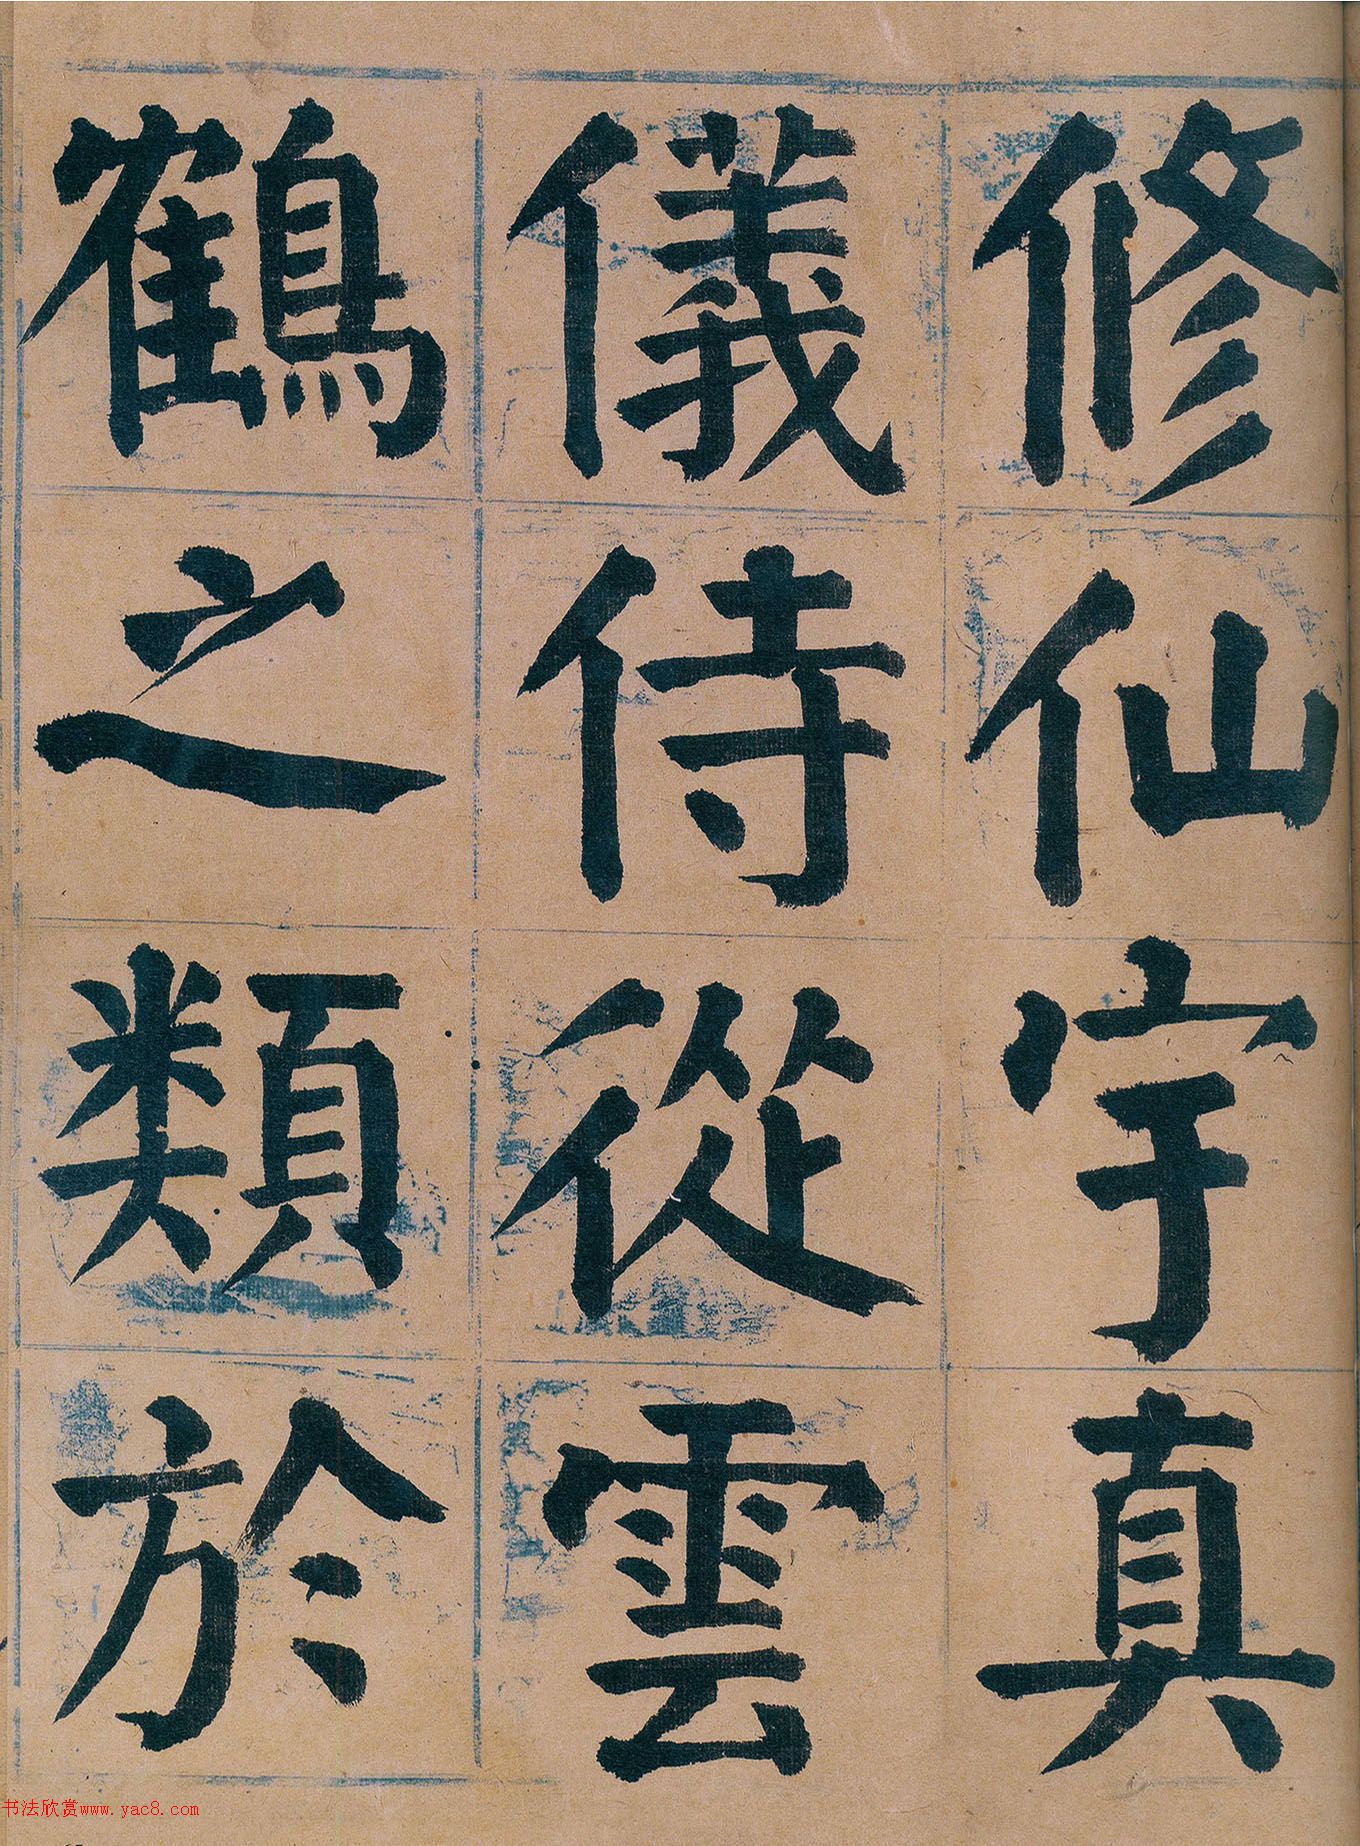 修仙宇真
儀侍從雲
鶴之類於
书法欣赏www.yac8.com